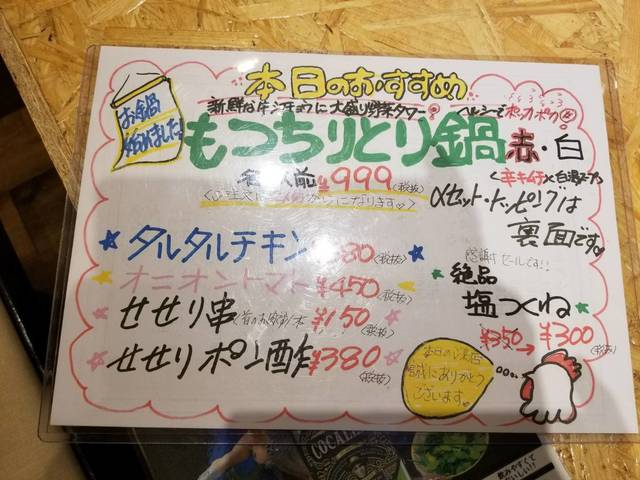 本日のおすすめ
お鍋
始めました
新鮮な牛シマチョウに大盛り野菜タワー
ヘルシーでポッカポカ
もつちりとり鍋 赤・白
各 人前 ¥999(税抜)
<辛キムチ×白湯スープ>
〆セット・トッピングは
裏面です。
タルタルチキン 380(税抜)
オニオントマト ¥450(税抜)
せせり串 ¥150(税抜)
せせりポン酢 ¥380(税抜)
感謝セールです!!
絶品
塩つくね
¥350→¥300(税抜)
本日のご来店
誠にありがとう
ございます
COCAL
飲みやすくて